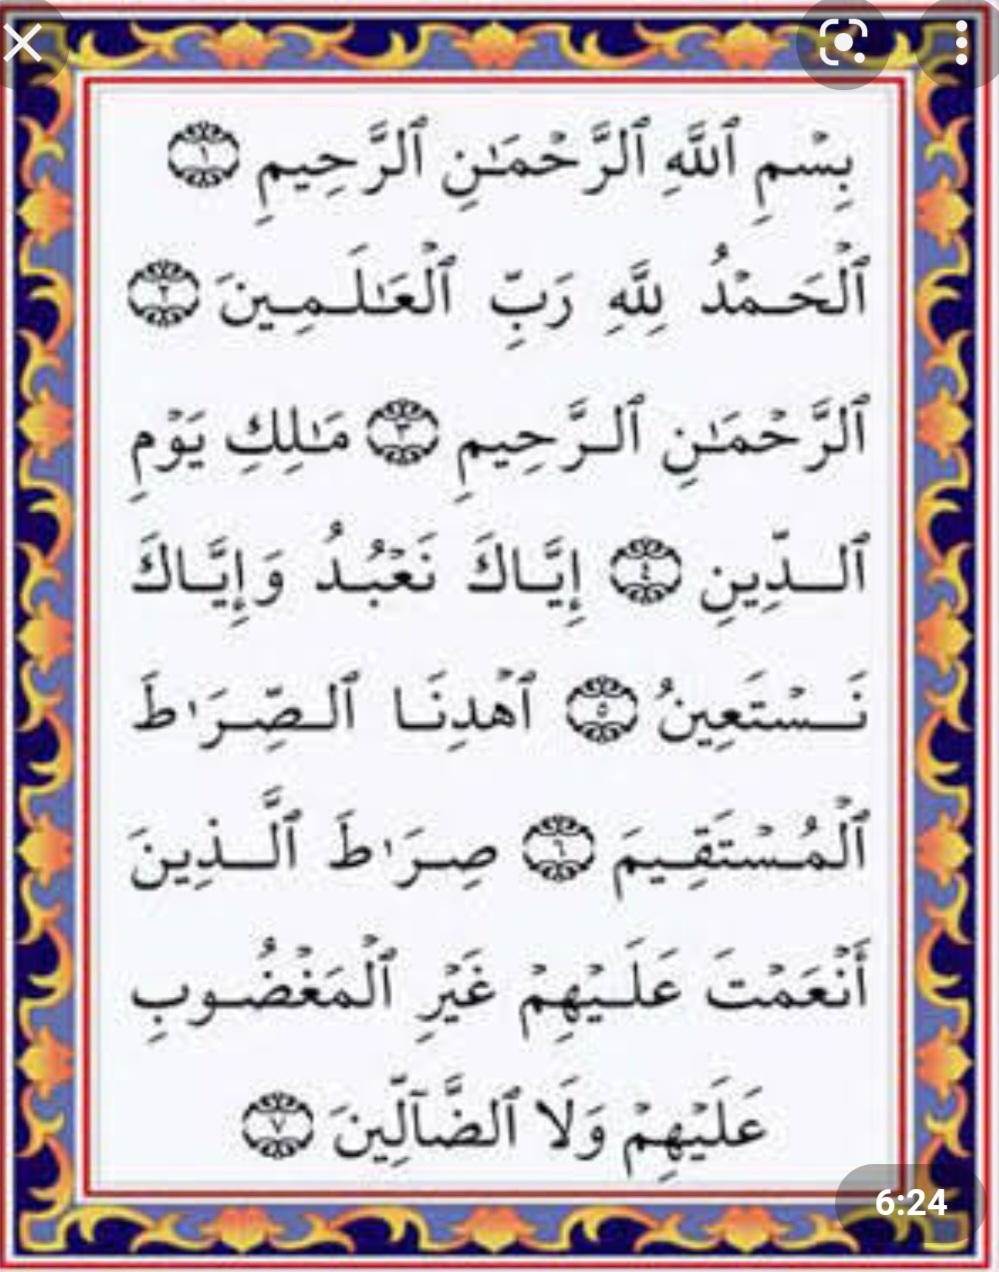 بِسْمِ ٱللَّهِ ٱلرَّحْمَـٰنِ ٱلرَّحِيمِ ١
ٱلْحَـمْدُ لِلَّهِ رَبِّ ٱلْعَـٰلَـمِـينَ ٢
ٱلرَّحْمَـٰنِ ٱلـرَّحِيمِ ٣ مَـٰلِكِ يَوْمِ
ٱلـــدِّينِ ٤ إِيَّـاكَ نَعْبُـدُ وَإِيَّـاكَ
نَــسْتَعِينُ ٥ ٱهْدِنَـا ٱلـصِّـرَ ٰطَ
ٱلْمُـسْتَقِـيمَ ٦ صِـرَ ٰطَ ٱلَّــذِينَ
أَنْعَمْتَ عَلَـيْهِمْ غَيْرِ ٱلْمَغْضُـوبِ
عَلَيْهِمْ وَلَا ٱلضَّآلِّينَ ٧
6:24